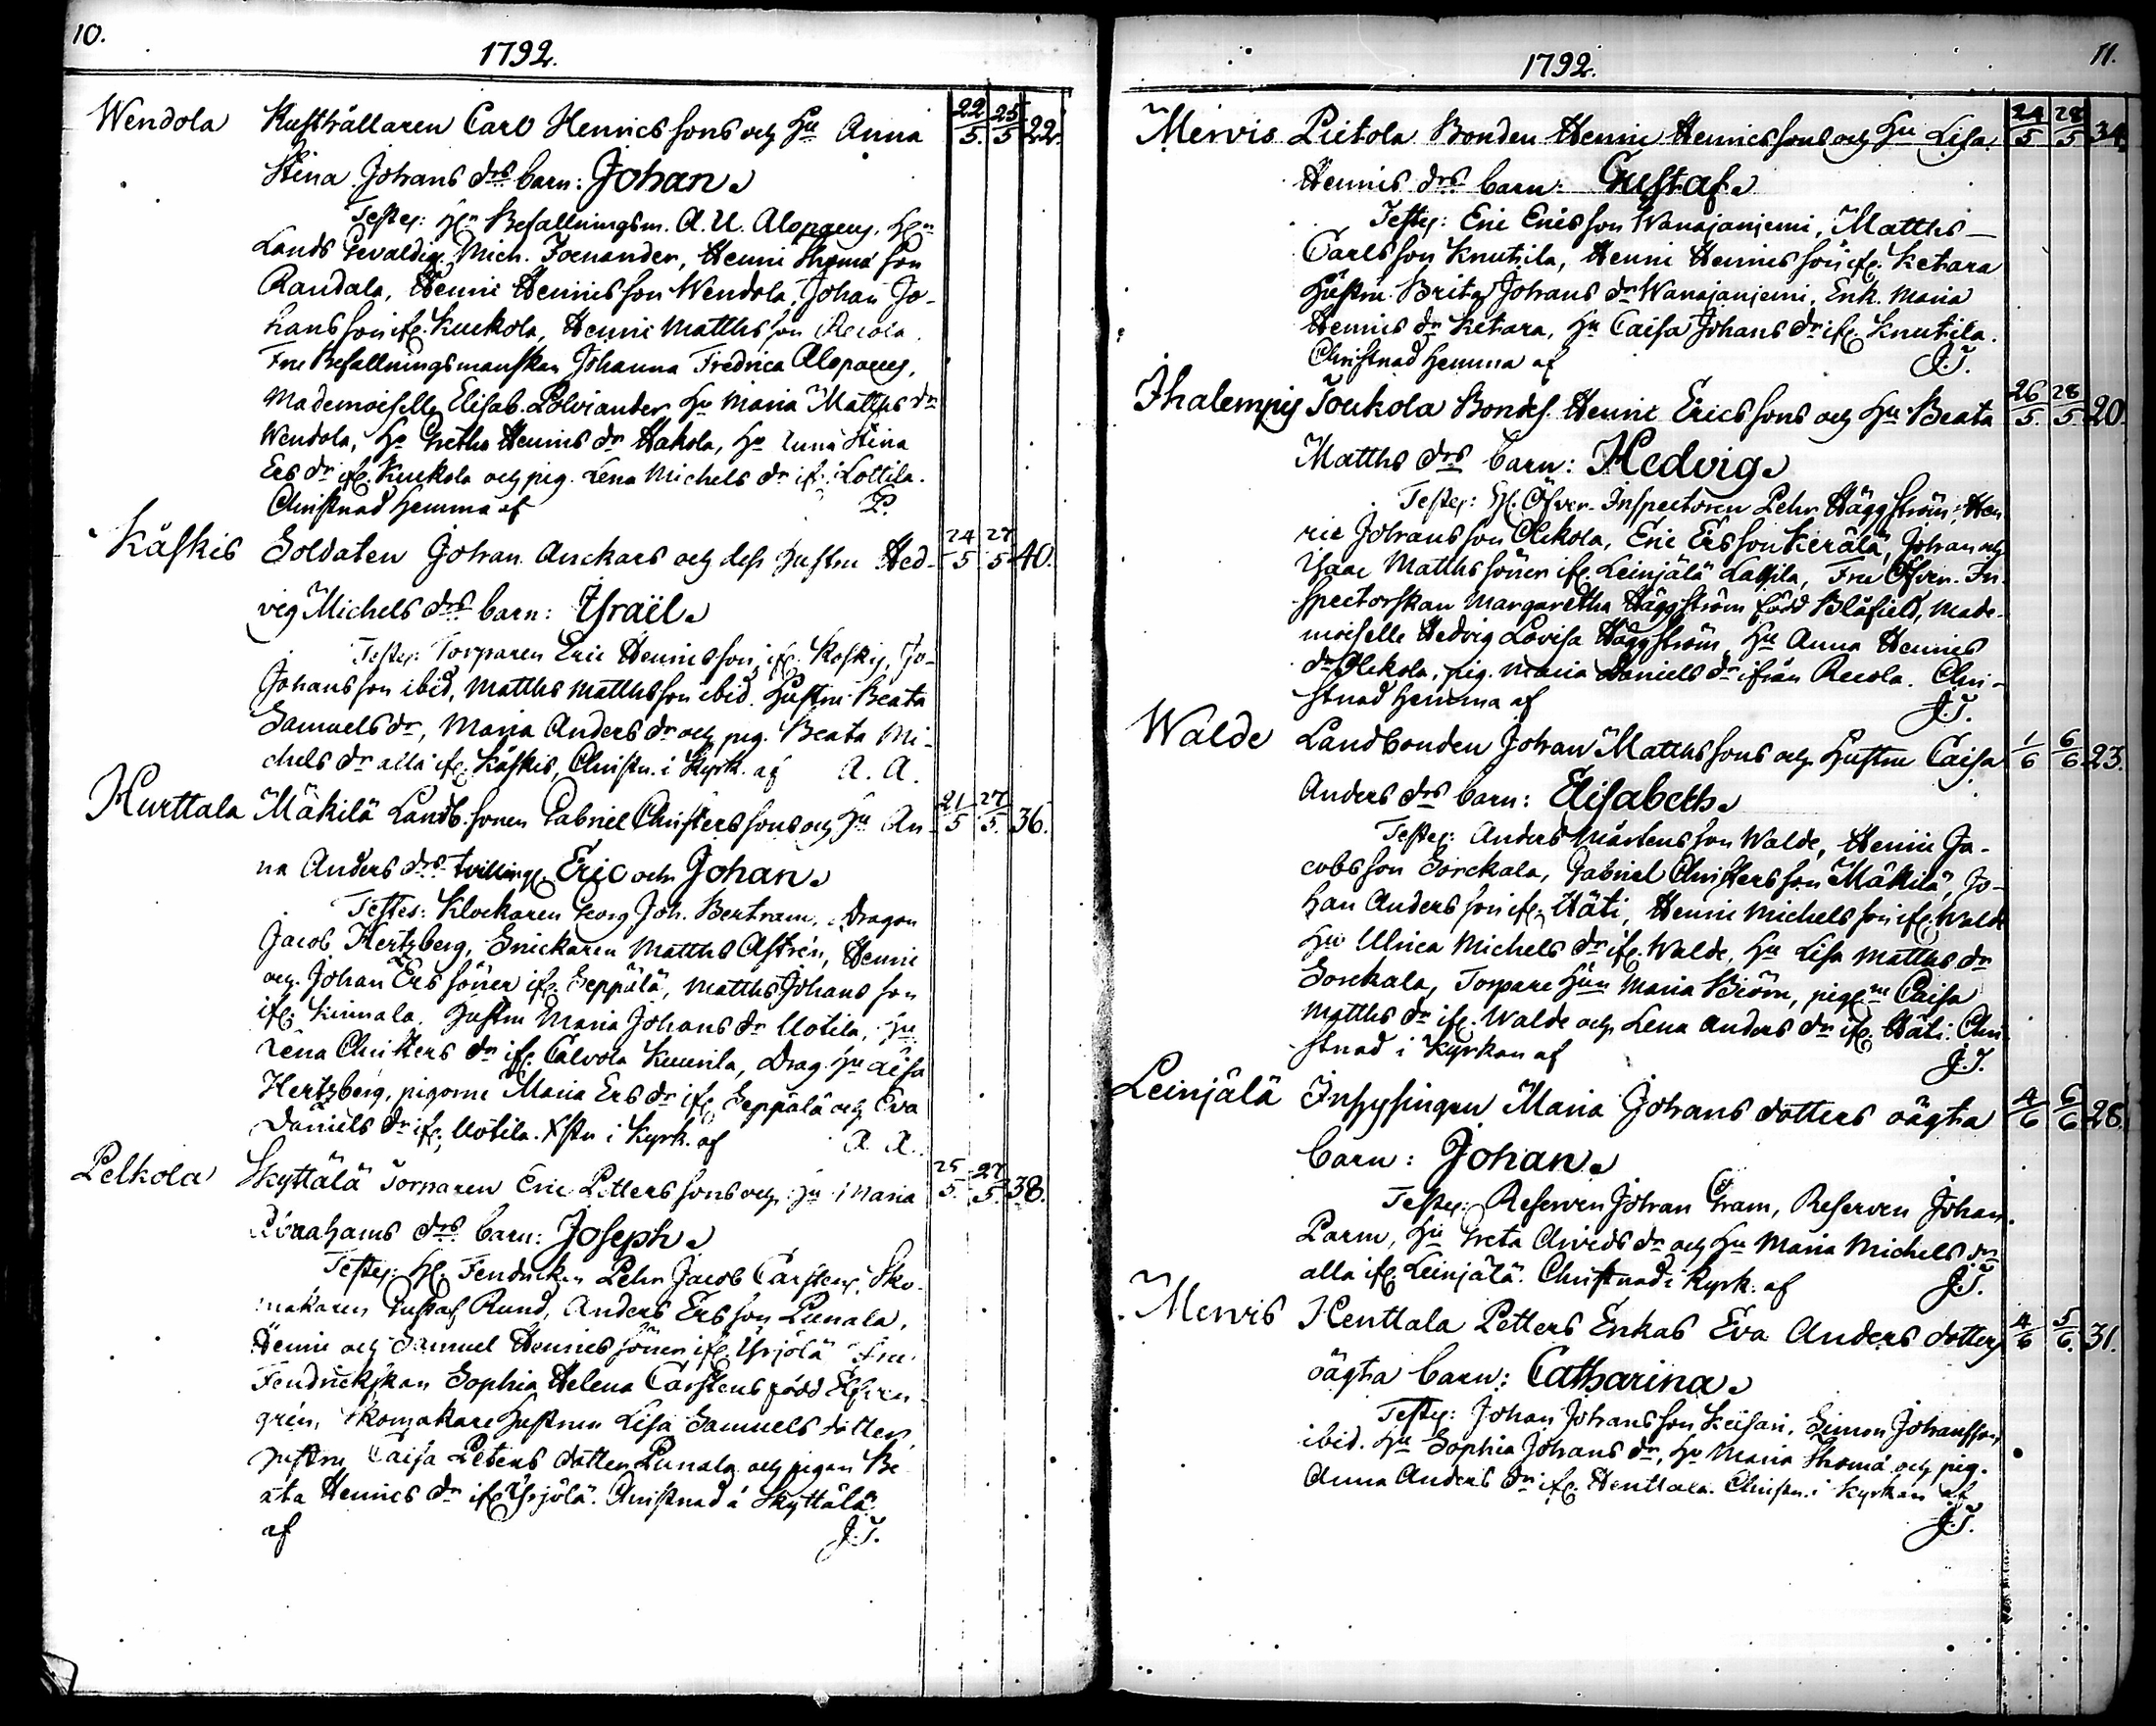 10.
1792.
Wendola Rusthållaren Carl Henrics sons och Hu Anna 22/5. 25/5 22.
Stina Johans drs barn: Johan.
Testes: Hr Befallningsm. A. U. Alopaeus, Hr
Lands Gevaldig. Mich. Fornander, Henric Thomæ son
Randala, Henric Henrics son Wendola, Johan Jo-
hans son ifr. Kuckola, Henric Matths son Recola.
Fru Befallningsmanskan Johanna Fredrica Alopaeus,
Mademoiselle Elisab. Polviander Hu Maria Matths dr
Wendola, Hu Gretha Henrics dr Hakola, Hu Anna Stina
Ers dr ifr. Kuckola och pig. Lena Michels dr ifr. Lottila.
Christnad hemma af P.
Kåskis Soldaten Johan Anckars och dess hustru Hed- 24/5 27/5 40.
vig Michels drs barn: Israël.
Testes: Torparen Eric Henrics son ifr. Koskis, Jo-
Johans son ibid, Matths Matths son ibid. Hustru Beata
Samuels dr, Maria Anders dr och pig. Beata Mi-
chels dr alla ifr. Kåskis, Christn. i Kyrk. af A. A.
Hurttala Mäkilä Landb. sonen Gabriel Christers sons och Hu An- 21/5 27/5. 36.
na Anders drs tvilling. Eric och Johan.
Testes: Klockaren Georg Joh. Bertram, Dragon
Jacob Hertzberg, Snickaren Matths Astrén, Henric
och Johan Ers söner ifr. Seppälä, Matths Johans son
ifr. Kinnala. Hustru Maria Johans dr Uotila, Hu
Lena Christers dr ifr. Calvola Kuurila, Drag. Hu Lisa
Hertzberg, pigorne Maria Ers dr ifr. Seppälä och Eva
Daniels dr ifr. Uotila. Xstn i Kyrk. af A. A.
Pelkola Skyttälä Torparen Eric Petters sons och Hu Maria 25/5. 27/5. 38.
Abrahams drs barn: Joseph.
Testes: Hr Fendricken Pehr Jacob Carstens, Sko-
makaren Gustaf Rund, Anders Ers son Punala,
Henric och Samuel Henrics söner ifr. Yrjölä Fru
Fendrickskan Sophia Helena Carstens född Elfven-
grén, Skomakare hustrun Lisa Samuels dotter,
hustru Caisa Peters dotter Punala och pigan Be-
ata Henrics dr ifr. Yrjölä. Christnad å Skyttälä
af J.T.
1792. 11.
Mervis Pietola Bonden Henric Henrics sons och Hu Lisa 24/5 28/5 34.
Henrics drs barn: Gustaf.
Testes: Eric Erics son Wanajanjemi, Matths
Carls son Knutila, Henric Henrics son ifr. Ketara
Hustru Brita Johans dr Wanajanjemi, Enk. Maria
Henrics dr Ketara, Hu Caisa Johans dr ifr. Knutila.
Christnad hemma af J.T.
Ihalempis Toukola Bondes. Henric Erics sons och Hu Beata 26/5. 28/5. 20.
Matths drs barn: Hedvig.
Testes: Hr Öfver-Inspectoren Pehr Häggström, Hen-
ric Johans son Olckola, Eric Ers son Kerälä, Johan och
Isaac Matths söner ifr. Leinjälä Lassila, Fru Öfver-In-
spectorskan Margaretha Häggström född Blåfield, Made-
moiselle Hedvig Lovisa Häggström, Hu Anna Henrics
dr Olckola, pig. Maria Daniels dr ifrån Recola. Chri-
stnad hemma af J.T.
Walde Landbonden Johan Matths sons och hustru Caisa 1/6 6/6 23.
Anders drs barn: Elisabeth.
Testes: Anders Mårtens son Walde, Henric Ja-
cobs son Sorckala, Gabriel Christers son Mäkilä, Jo-
han Anders son ifr. Häti, Henric Michels son ifr. Walde
Hu Ulrica Michels dr ifr. Walde, Hu Lisa Matths dr
Sorckala, Torpare Hun Maria Biörn, pigorne Caisa
Matths dr ifr. Walde och Lena Anders dr ifr. Häti. Chri-
stnad i Kyrkan af J.T.
Leinjälä Inhysingen Maria Johans dotters oägta 4/6 6/6 28.
barn: Johan.
Testes: Reserven Johan Gram, Reserven Johan
Parm, Hu Greta Arvids dr och Hu Maria Michels dr
alla ifr. Leinjälä. Christnad i Kyrk. af J.T.
Mervis Henttala Petters Enkas Eva Anders dotters 4/6 5/6. 31.
oägta barn: Catharina.
Testes: Johan Johans son Keisari, Simon Johansson
ibid. Hu Sophia Johans dr, Hu Maria Thomæ och pig.
Anna Anders dr ifr. Henttala. Christn. i Kyrkan af
J.T.